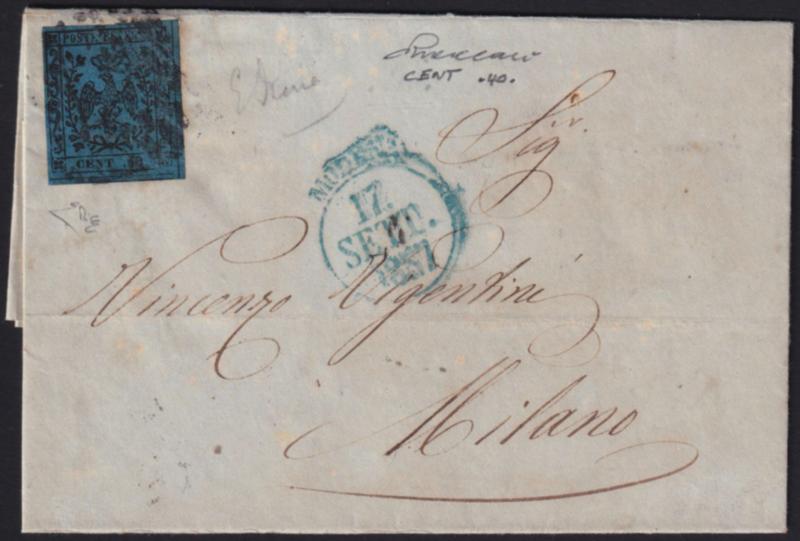 POSTE ESTENSI
CENT. 40
CENT .40.
MODENA
17.
SETT.
1857
Sigr.
Vincenzo Vigentini
Milano